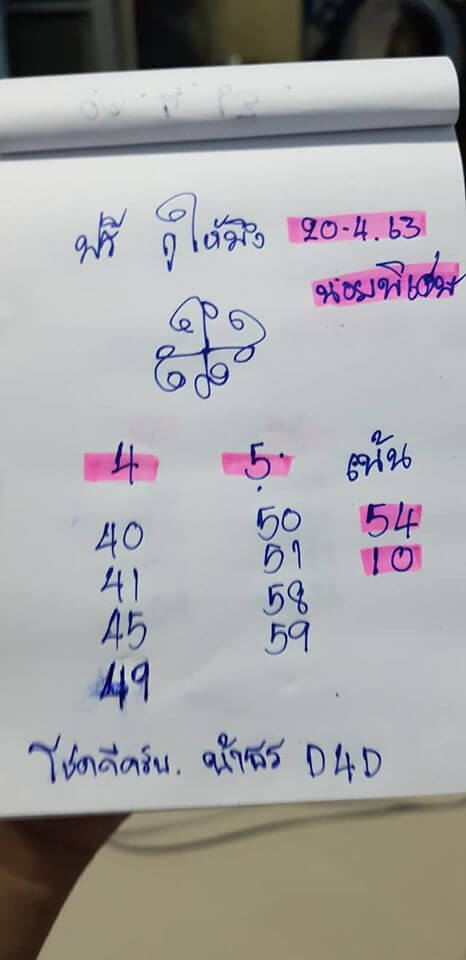 ฟรี กูให้มึง 20-4.63
นอยพิเศษ
4 5. เน้น
40 50 54
41 51 10
45 58
49 59
โชคดีครับ. น้าธร D4D